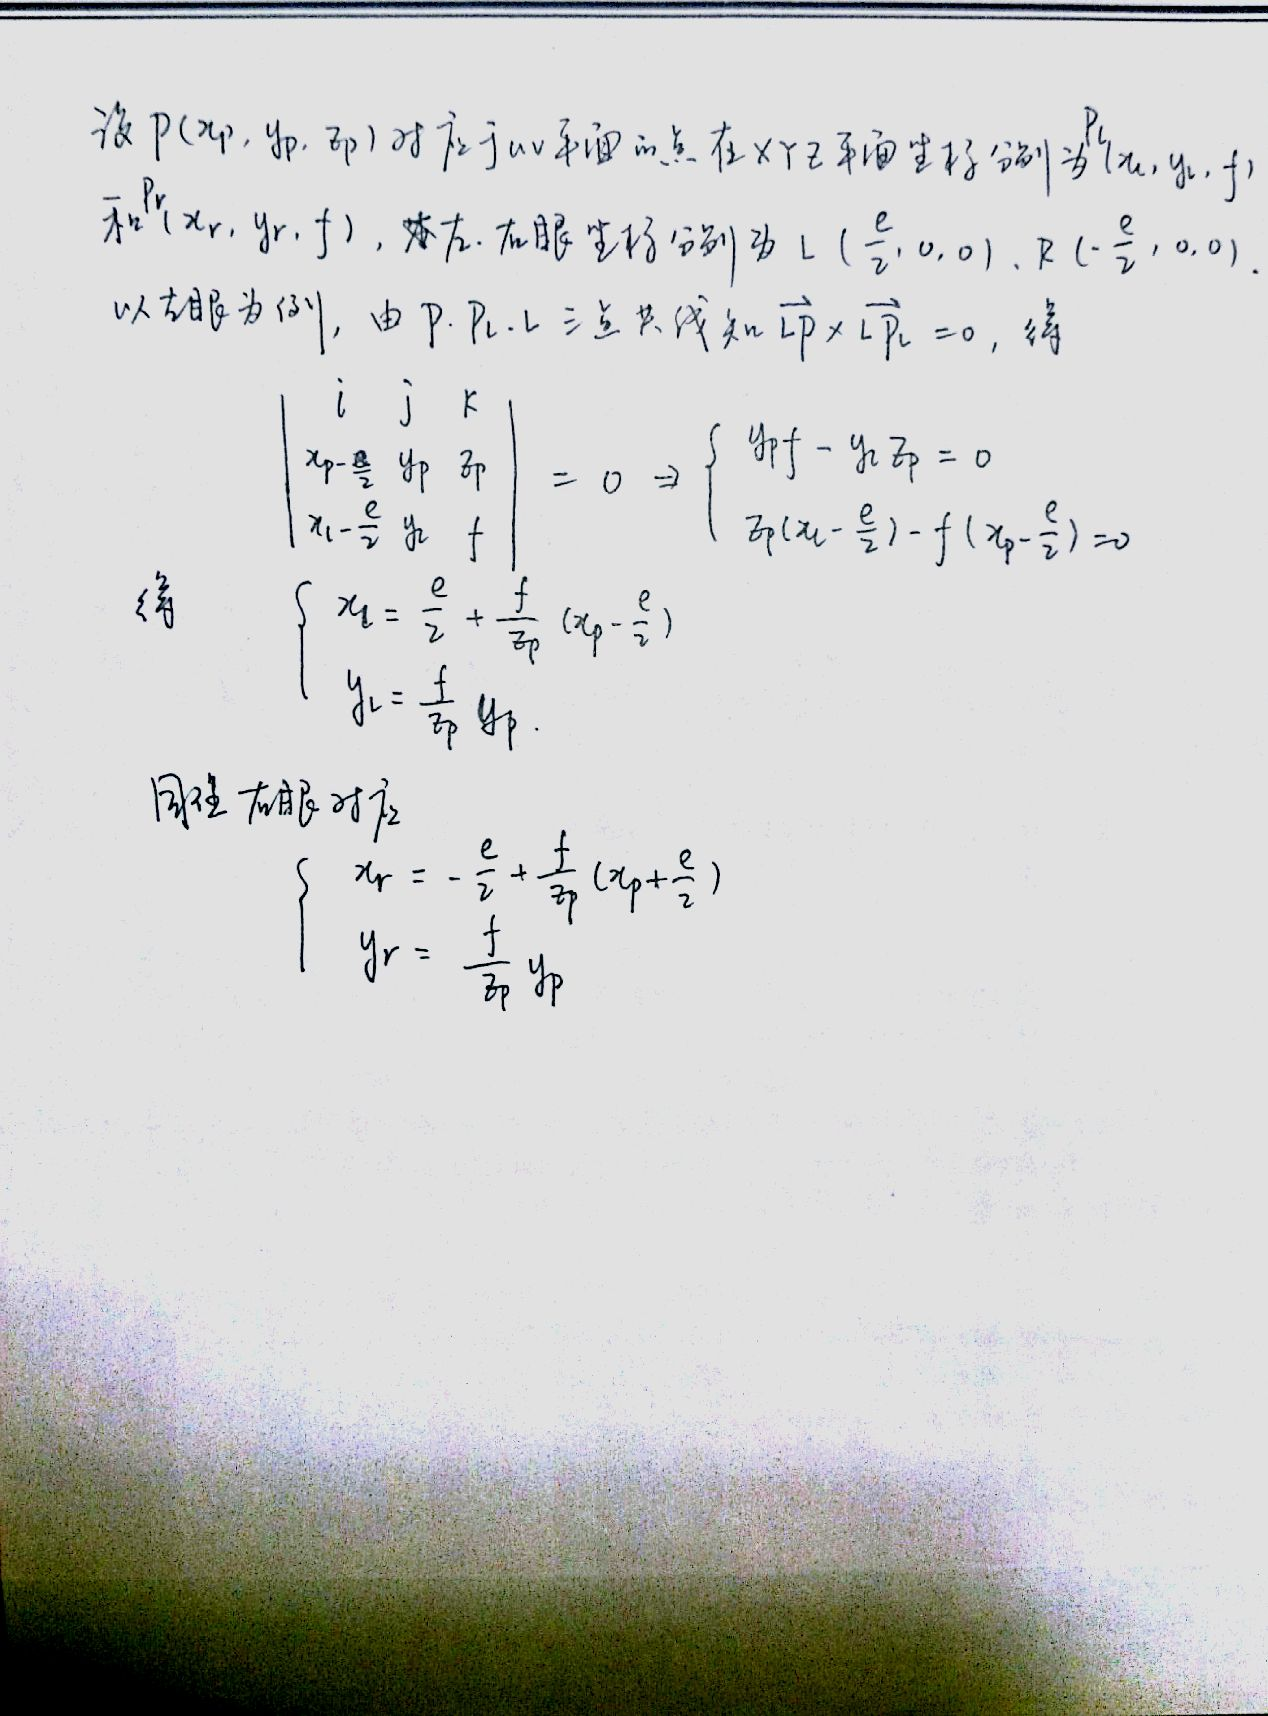 设 P(xp, yp, zp) 对应于uv平面的点在XYZ平面坐标分别为PL(xL, yL, f)
和Pr(xr, yr, f), 左.右眼坐标分别为 L (e/2, 0, 0)、R (-e/2, 0, 0).
以左眼为例, 由 P. PL. L 三点共线知 LP→ × LPL→ = 0, 得
| i j k |
| xp-e/2 yp zp | = 0 ⇒ { ypf - yLzp = 0
| xL-e/2 yL f | zp(xL-e/2) - f(xp-e/2) = 0
得 { xL = e/2 + f/zp (xp - e/2)
yL = f/zp yp.
同理右眼对应
{ xr = -e/2 + f/zp (xp + e/2)
yr = f/zp yp